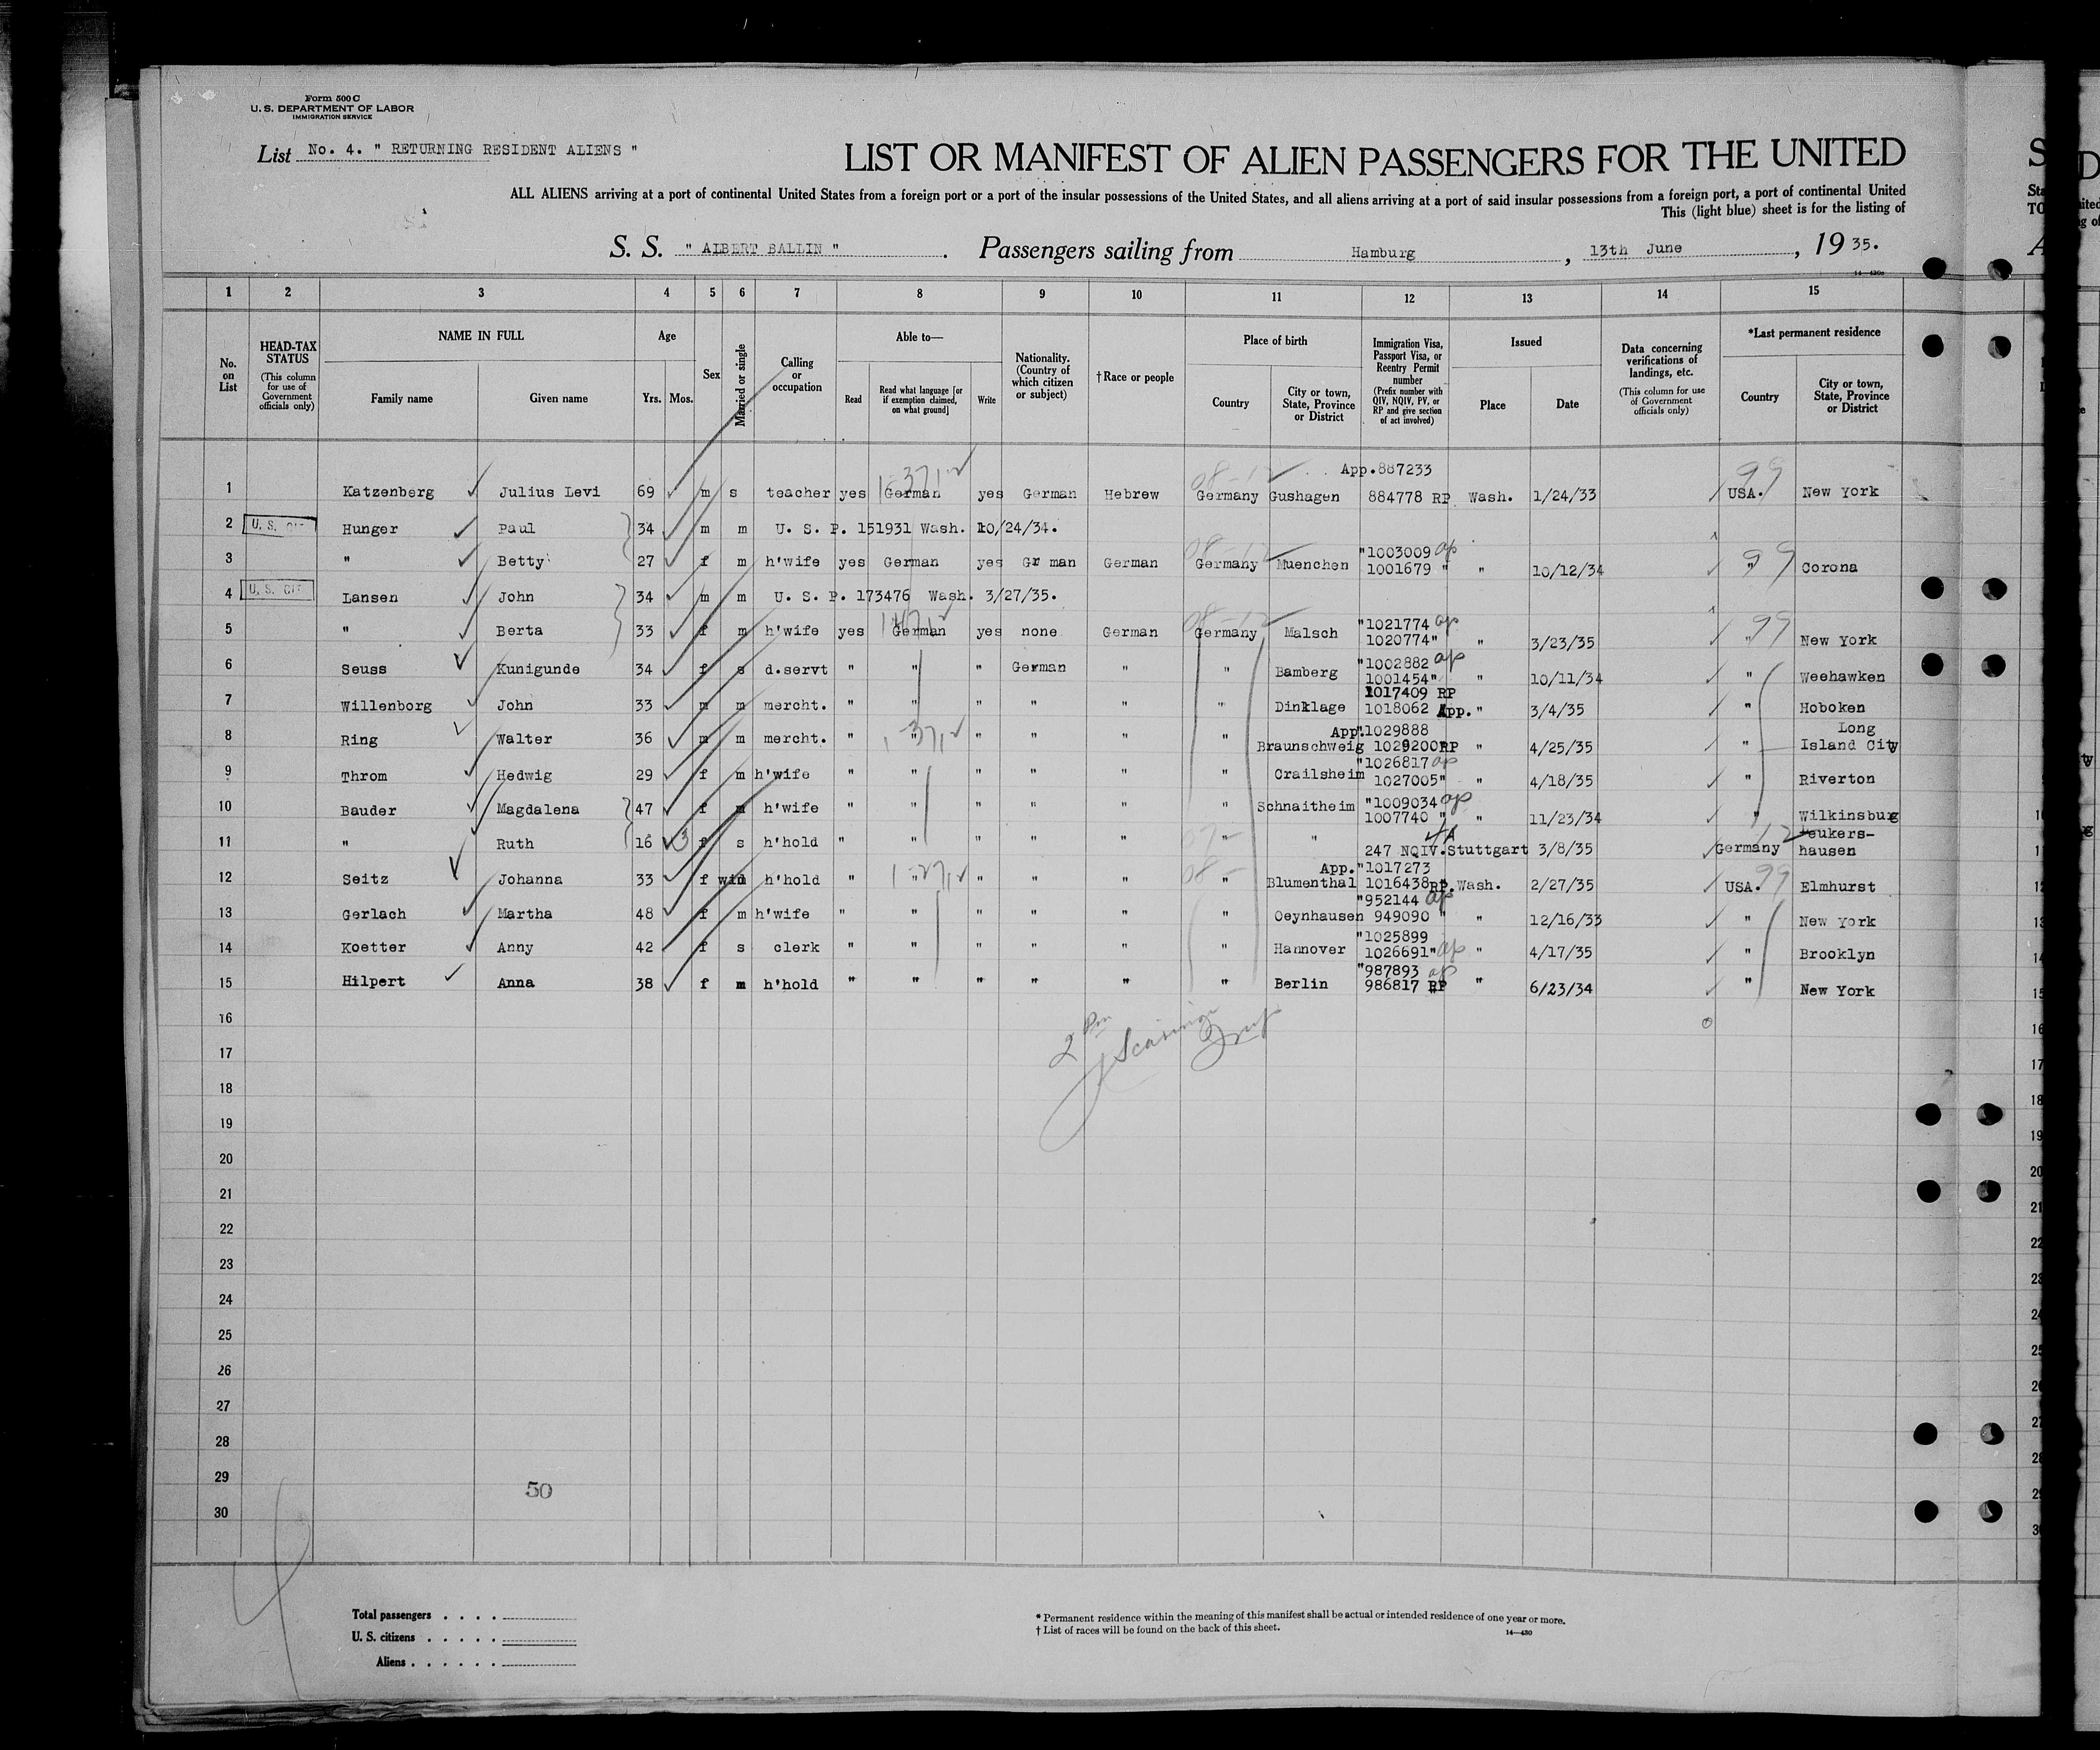 Form 500 C
U. S. DEPARTMENT OF LABOR
IMMIGRATION SERVICE
List No. 4. " RETURNING RESIDENT ALIENS "
LIST OR MANIFEST OF ALIEN PASSENGERS FOR THE UNITED
ALL ALIENS arriving at a port of continental United States from a foreign port or a port of the insular possessions of the United States, and all aliens arriving at a port of said insular possessions from a foreign port, a port of continental United
This (light blue) sheet is for the listing of
S. S. " ALBERT BALLIN " . Passengers sailing from Hamburg , 13th June , 19 35.
1 2 3 4 5 6 7 8 9 10 11 12 13 14 15
No. on List
HEAD-TAX STATUS (This column for use of Government officials only)
NAME IN FULL Family name Given name
Age Yrs. Mos.
Sex
Married or single
Calling or occupation
Able to— Read Read what language [or if exemption claimed, on what ground] Write
Nationality. (Country of which citizen or subject)
†Race or people
Place of birth Country City or town, State, Province or District
Immigration Visa, Passport Visa, or Reentry Permit number (Prefix number with QIV, NQIV, PV, or RP and give section of act involved)
Issued Place Date
Data concerning verifications of landings, etc. (This column for use of Government officials only)
*Last permanent residence Country City or town, State, Province or District
App.887233
1 Katzenberg Julius Levi 69 m s teacher yes German yes German Hebrew Germany Gushagen 884778 RP Wash. 1/24/33 USA. New York
2 U. S. CIT Hunger Paul 34 m m U. S. P. 151931 Wash. 10/24/34.
"1003009 ap
3 " Betty 27 f m h'wife yes German yes Gr man German Germany Muenchen 1001679 " " 10/12/34 " Corona
4 U. S. CIT Lansen John 34 m m U. S. P. 173476 Wash. 3/27/35.
"1021774 ap
5 " Berta 33 f m h'wife yes German yes none German Germany Malsch 1020774" " 3/23/35 " New York
"1002882 ap
6 Seuss Kunigunde 34 f s d.servt " " " German " " Bamberg 1001454" " 10/11/34 " Weehawken
1017409 RP
7 Willenborg John 33 m m mercht. " " " " " " Dinklage 1018062 App. " 3/4/35 " Hoboken
App."1029888 Long
8 Ring Walter 36 m m mercht. " " " " " " Braunschweig 1029200RP " 4/25/35 " Island City
"1026817 ap
9 Throm Hedwig 29 f m h'wife " " " " " " Crailsheim 1027005" " 4/18/35 " Riverton
"1009034 ap
10 Bauder Magdalena 47 f m h'wife " " " " " " Schnaitheim 1007740 " " 11/23/34 " Wilkinsburg
11 " Ruth 16 3 f s h'hold " " " " " " " 247 NQIV. Stuttgart 3/8/35 Germany Neukers-hausen
App."1017273
12 Seitz Johanna 33 f wid h'hold " " " " " " Blumenthal 1016438RP. Wash. 2/27/35 USA. Elmhurst
"952144 ap
13 Gerlach Martha 48 f m h'wife " " " " " " Oeynhausen 949090 " " 12/16/33 " New York
"1025899
14 Koetter Anny 42 f s clerk " " " " " " Hannover 1026691" ap " 4/17/35 " Brooklyn
"987893 ap
15 Hilpert Anna 38 f m h'hold " " " " " " Berlin 986817 RP " 6/23/34 " New York
16
17
18
19
20
21
22
23
24
25
26
27
28
29
30
50
Total passengers
U. S. citizens
Aliens
* Permanent residence within the meaning of this manifest shall be actual or intended residence of one year or more.
† List of races will be found on the back of this sheet.
14—430